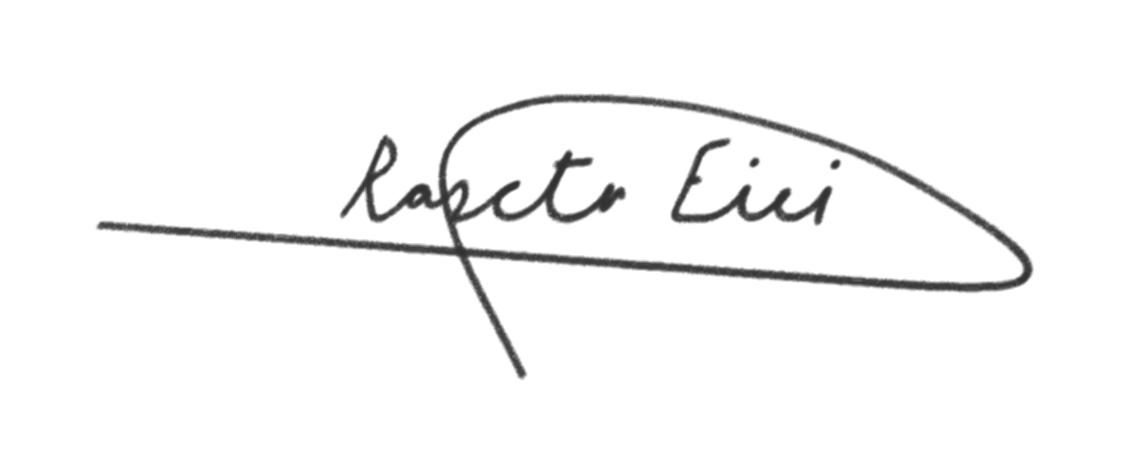 Rapctr Eici